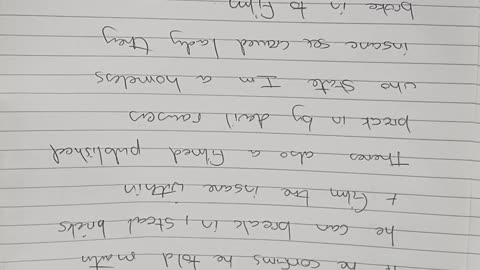 he confirms he told
he can break in, steal bricks
+ film the insane within
Theres also a filmed published
break in by devil
who state I'm a homeless
insane lady they
broke in to film